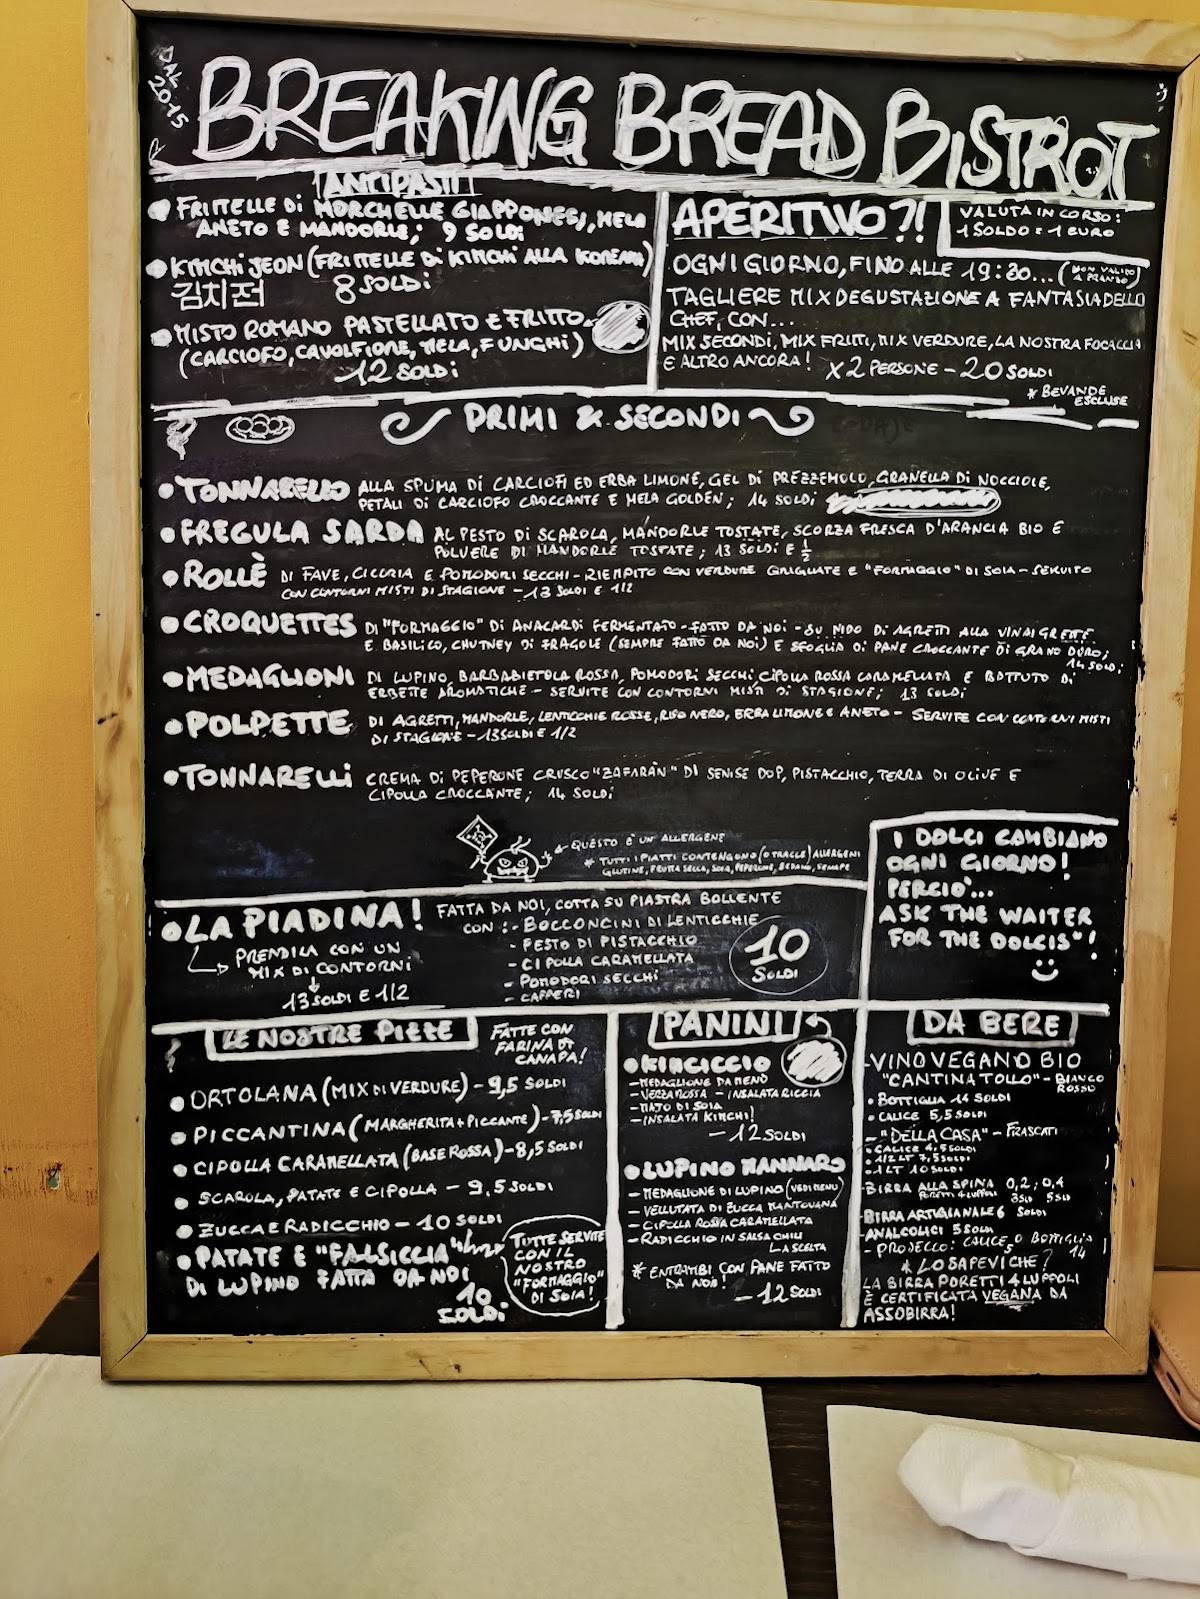 DAL
2015
BREAKING BREAD BISTROT
ANTIPASTI
FRITTELLE DI MORCHELLE GIAPPONESI, MELA
ANETO E MANDORLE; 9 SOLDI
KIMCHI JEON (FRITTELLE DI KIMCHI ALLA KOREANA)
김치전 8 SOLDI
MISTO ROMANO PASTELLATO E FRITTO
(CARCIOFO, CAVOLFIORE, MELA, FUNGHI)
12 SOLDI
APERITIVO?!
VALUTA IN CORSO:
1 SOLDO = 1 EURO
OGNI GIORNO, FINO ALLE 19:30... (NON VALIDO
A PRANZO)
TAGLIERE MIX DEGUSTAZIONE A FANTASIA DELLO
CHEF, CON...
MIX SECONDI, MIX FRITTI, MIX VERDURE, LA NOSTRA FOCACCIA
E ALTRO ANCORA! X2 PERSONE - 20 SOLDI
* BEVANDE
ESCLUSE
PRIMI & SECONDI
• TONNARELLO ALLA SPUMA DI CARCIOFI ED ERBA LIMONE, GEL DI PREZZEMOLO, GRANELLA DI NOCCIOLE,
PETALI DI CARCIOFO CROCCANTE E MELA GOLDEN; 14 SOLDI
• FREGULA SARDA AL PESTO DI SCAROLA, MANDORLE TOSTATE, SCORZA FRESCA D'ARANCIA BIO E
POLVERE DI MANDORLE TOSTATE; 13 SOLDI E 1/2
• ROLLÈ DI FAVE, CICORIA E POMODORI SECCHI - RIEMPITO CON VERDURE GRIGLIATE E "FORMAGGIO" DI SOIA - SERVITO
CON CONTORNI MISTI DI STAGIONE - 13 SOLDI E 1/2
• CROQUETTES DI "FORMAGGIO" DI ANACARDI FERMENTATO - FATTO DA NOI - SU NIDO DI AGRETTI ALLA VINAIGRETTE
E BASILICO, CHUTNEY DI FRAGOLE (SEMPRE FATTO DA NOI) E SFOGLIA DI PANE CROCCANTE DI GRANO DURO;
14 SOLDI;
• MEDAGLIONI DI LUPINO, BARBABIETOLA ROSSA, POMODORI SECCHI, CIPOLLA ROSSA CARAMELLATA E BATTUTO DI
ERBETTE AROMATICHE - SERVITE CON CONTORNI MISTI DI STAGIONE; 13 SOLDI
• POLPETTE DI AGRETTI, MANDORLE, LENTICCHIE ROSSE, RISO NERO, ERBA LIMONE E ANETO - SERVITE CON CONTORNI MISTI
DI STAGIONE - 13 SOLDI E 1/2
• TONNARELLI CREMA DI PEPERONE CRUSCO "ZAFARÀN" DI SENISE DOP, PISTACCHIO, TERRA DI OLIVE E
CIPOLLA CROCCANTE; 14 SOLDI
QUESTO È UN ALLERGENE
* TUTTI I PIATTI CONTENGONO (O TRACCE) ALLERGENI
GLUTINE, FRUTTA SECCA, SOIA, PEPERONE, SEDANO, SENAPE
I DOLCI CAMBIANO
OGNI GIORNO!
PERCIÒ...
ASK THE WAITER
FOR THE "DOLCIS"!
• LA PIADINA! FATTA DA NOI, COTTA SU PIASTRA BOLLENTE
CON: - BOCCONCINI DI LENTICCHIE
- PESTO DI PISTACCHIO
- CIPOLLA CARAMELLATA
- POMODORI SECCHI
- CAPPERI
10
SOLDI
PRENDILA CON UN
MIX DI CONTORNI
13 SOLDI E 1/2
LE NOSTRE PIZZE
FATTE CON
FARINA DI
CANAPA!
• ORTOLANA (MIX DI VERDURE) - 9,5 SOLDI
• PICCANTINA (MARGHERITA + PICCANTE) - 7,5 SOLDI
• CIPOLLA CARAMELLATA (BASE ROSSA) - 8,5 SOLDI
• SCAROLA, PATATE E CIPOLLA - 9,5 SOLDI
• ZUCCA E RADICCHIO - 10 SOLDI
• PATATE E "FALSICCIA"
DI LUPINO FATTA DA NOI
10
SOLDI
TUTTE SERVITE
CON IL
NOSTRO
"FORMAGGIO"
DI SOIA!
PANINI
• KIMCICCIO
- MEDAGLIONE DA MENÙ
- VERZA ROSSA - INSALATA RICCIA
- MAYO DI SOIA
- INSALATA KIMCHI!
- 12 SOLDI
• LUPINO MANNARO
- MEDAGLIONE DI LUPINO (VEDI MENÙ)
- VELLUTATA DI ZUCCA MANTOVANA
- CIPOLLA ROSSA CARAMELLATA
- RADICCHIO IN SALSA CHILI
LA SCELTA
* ENTRAMBI CON PANE FATTO
DA NOI!
- 12 SOLDI
DA BERE
VINO VEGANO BIO
"CANTINA TOLLO" - BIANCO
ROSSO
• BOTTIGLIA 14 SOLDI
• CALICE 5,5 SOLDI
- "DELLA CASA" - FRASCATI
• CALICE 4,5 SOLDI
• 1/2 LT 7,5 SOLDI
• 1 LT 10 SOLDI
- BIRRA ALLA SPINA 0,2; 0,4
PORETTI 4 LUPPOLI 3 SLD 5 SLD
- BIRRA ARTIGIANALE 6 SOLDI
- ANALCOLICI 5 SOLDI
- PROSECCO: CALICE O BOTTIGLIA
5 14
* LO SAPEVICHE?
LA BIRRA PORETTI 4 LUPPOLI
È CERTIFICATA VEGANA DA
ASSOBIRRA!